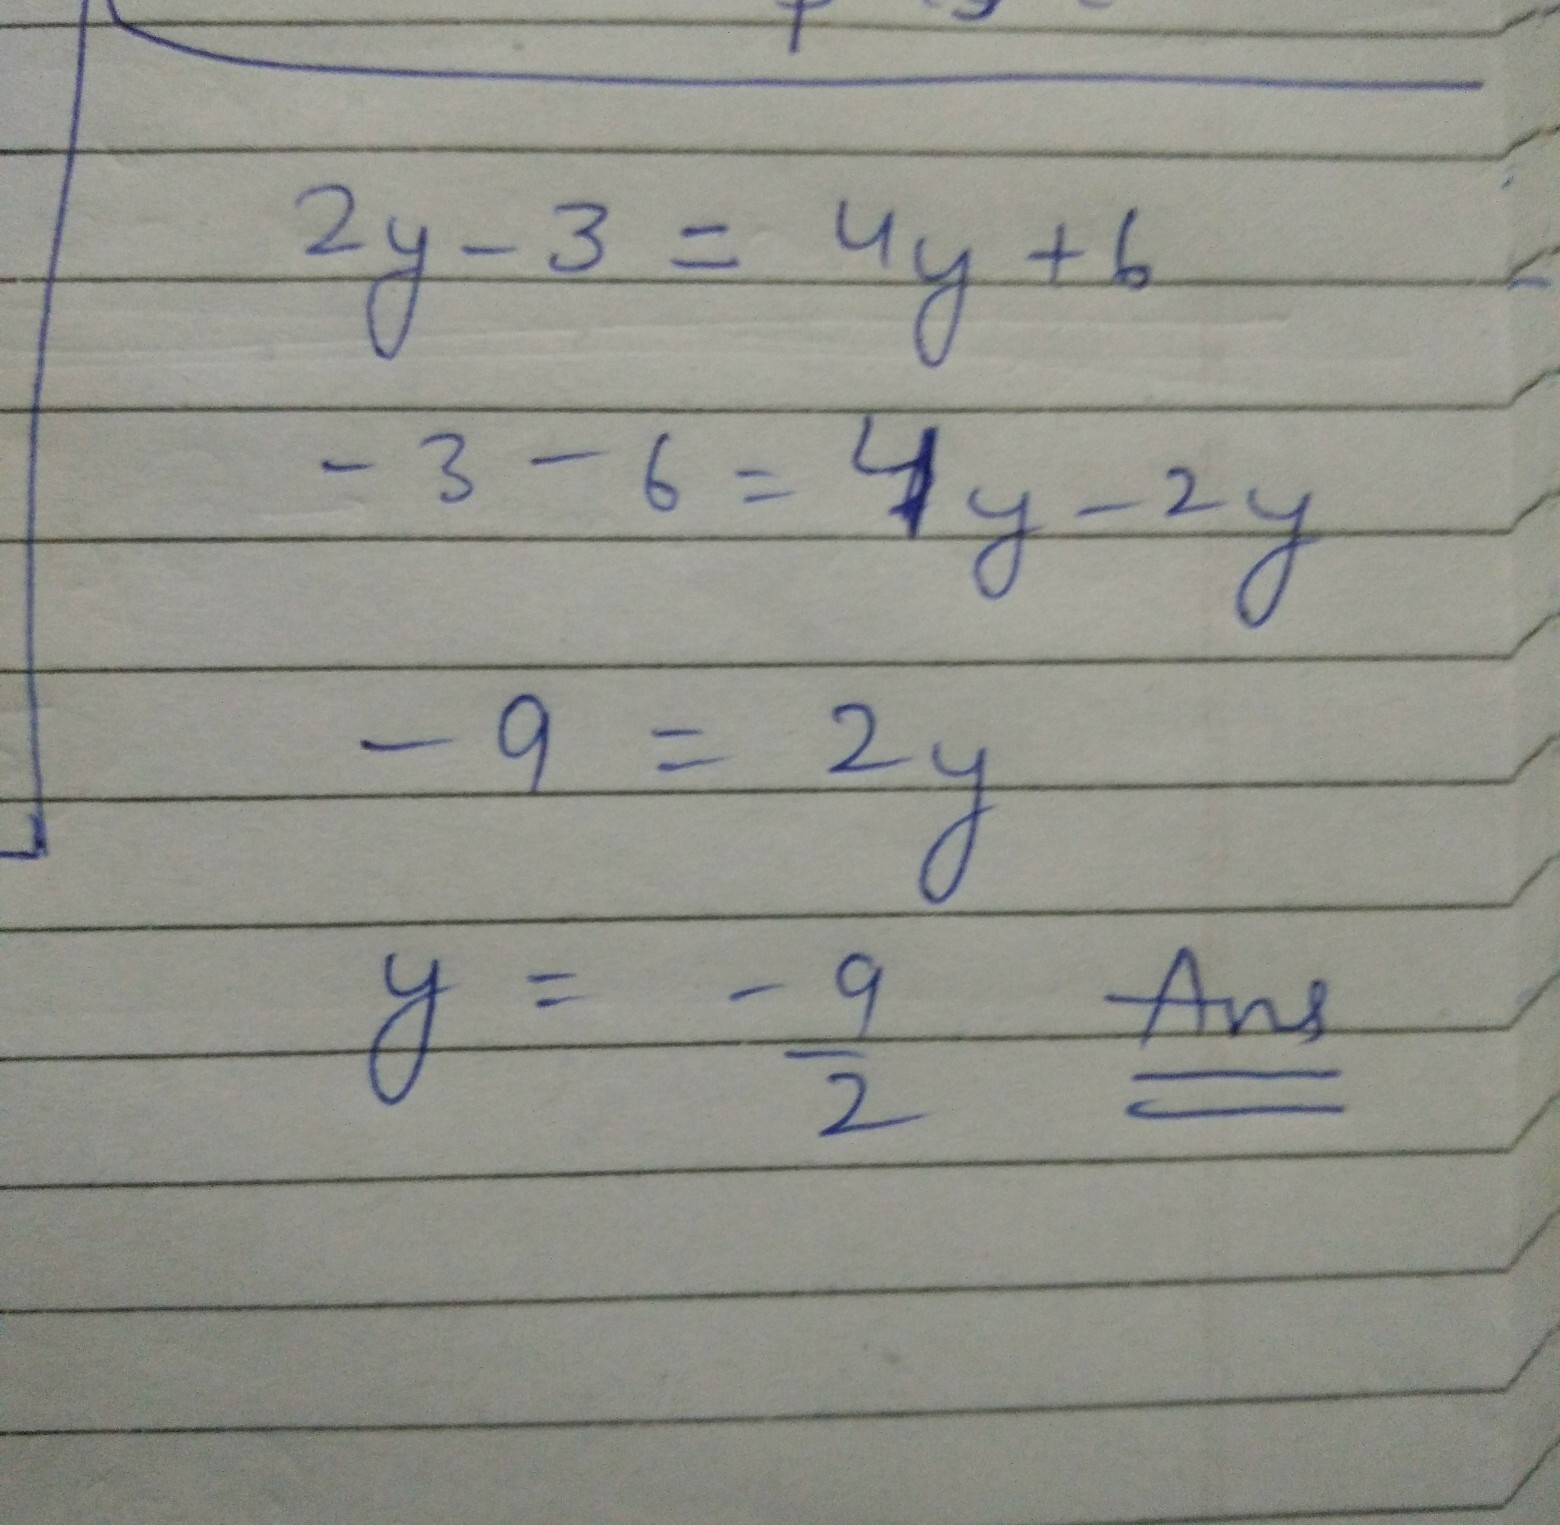 2y - 3 = 4y + 6
- 3 - 6 = 4y - 2y
- 9 = 2y
y = -9/2 Ans